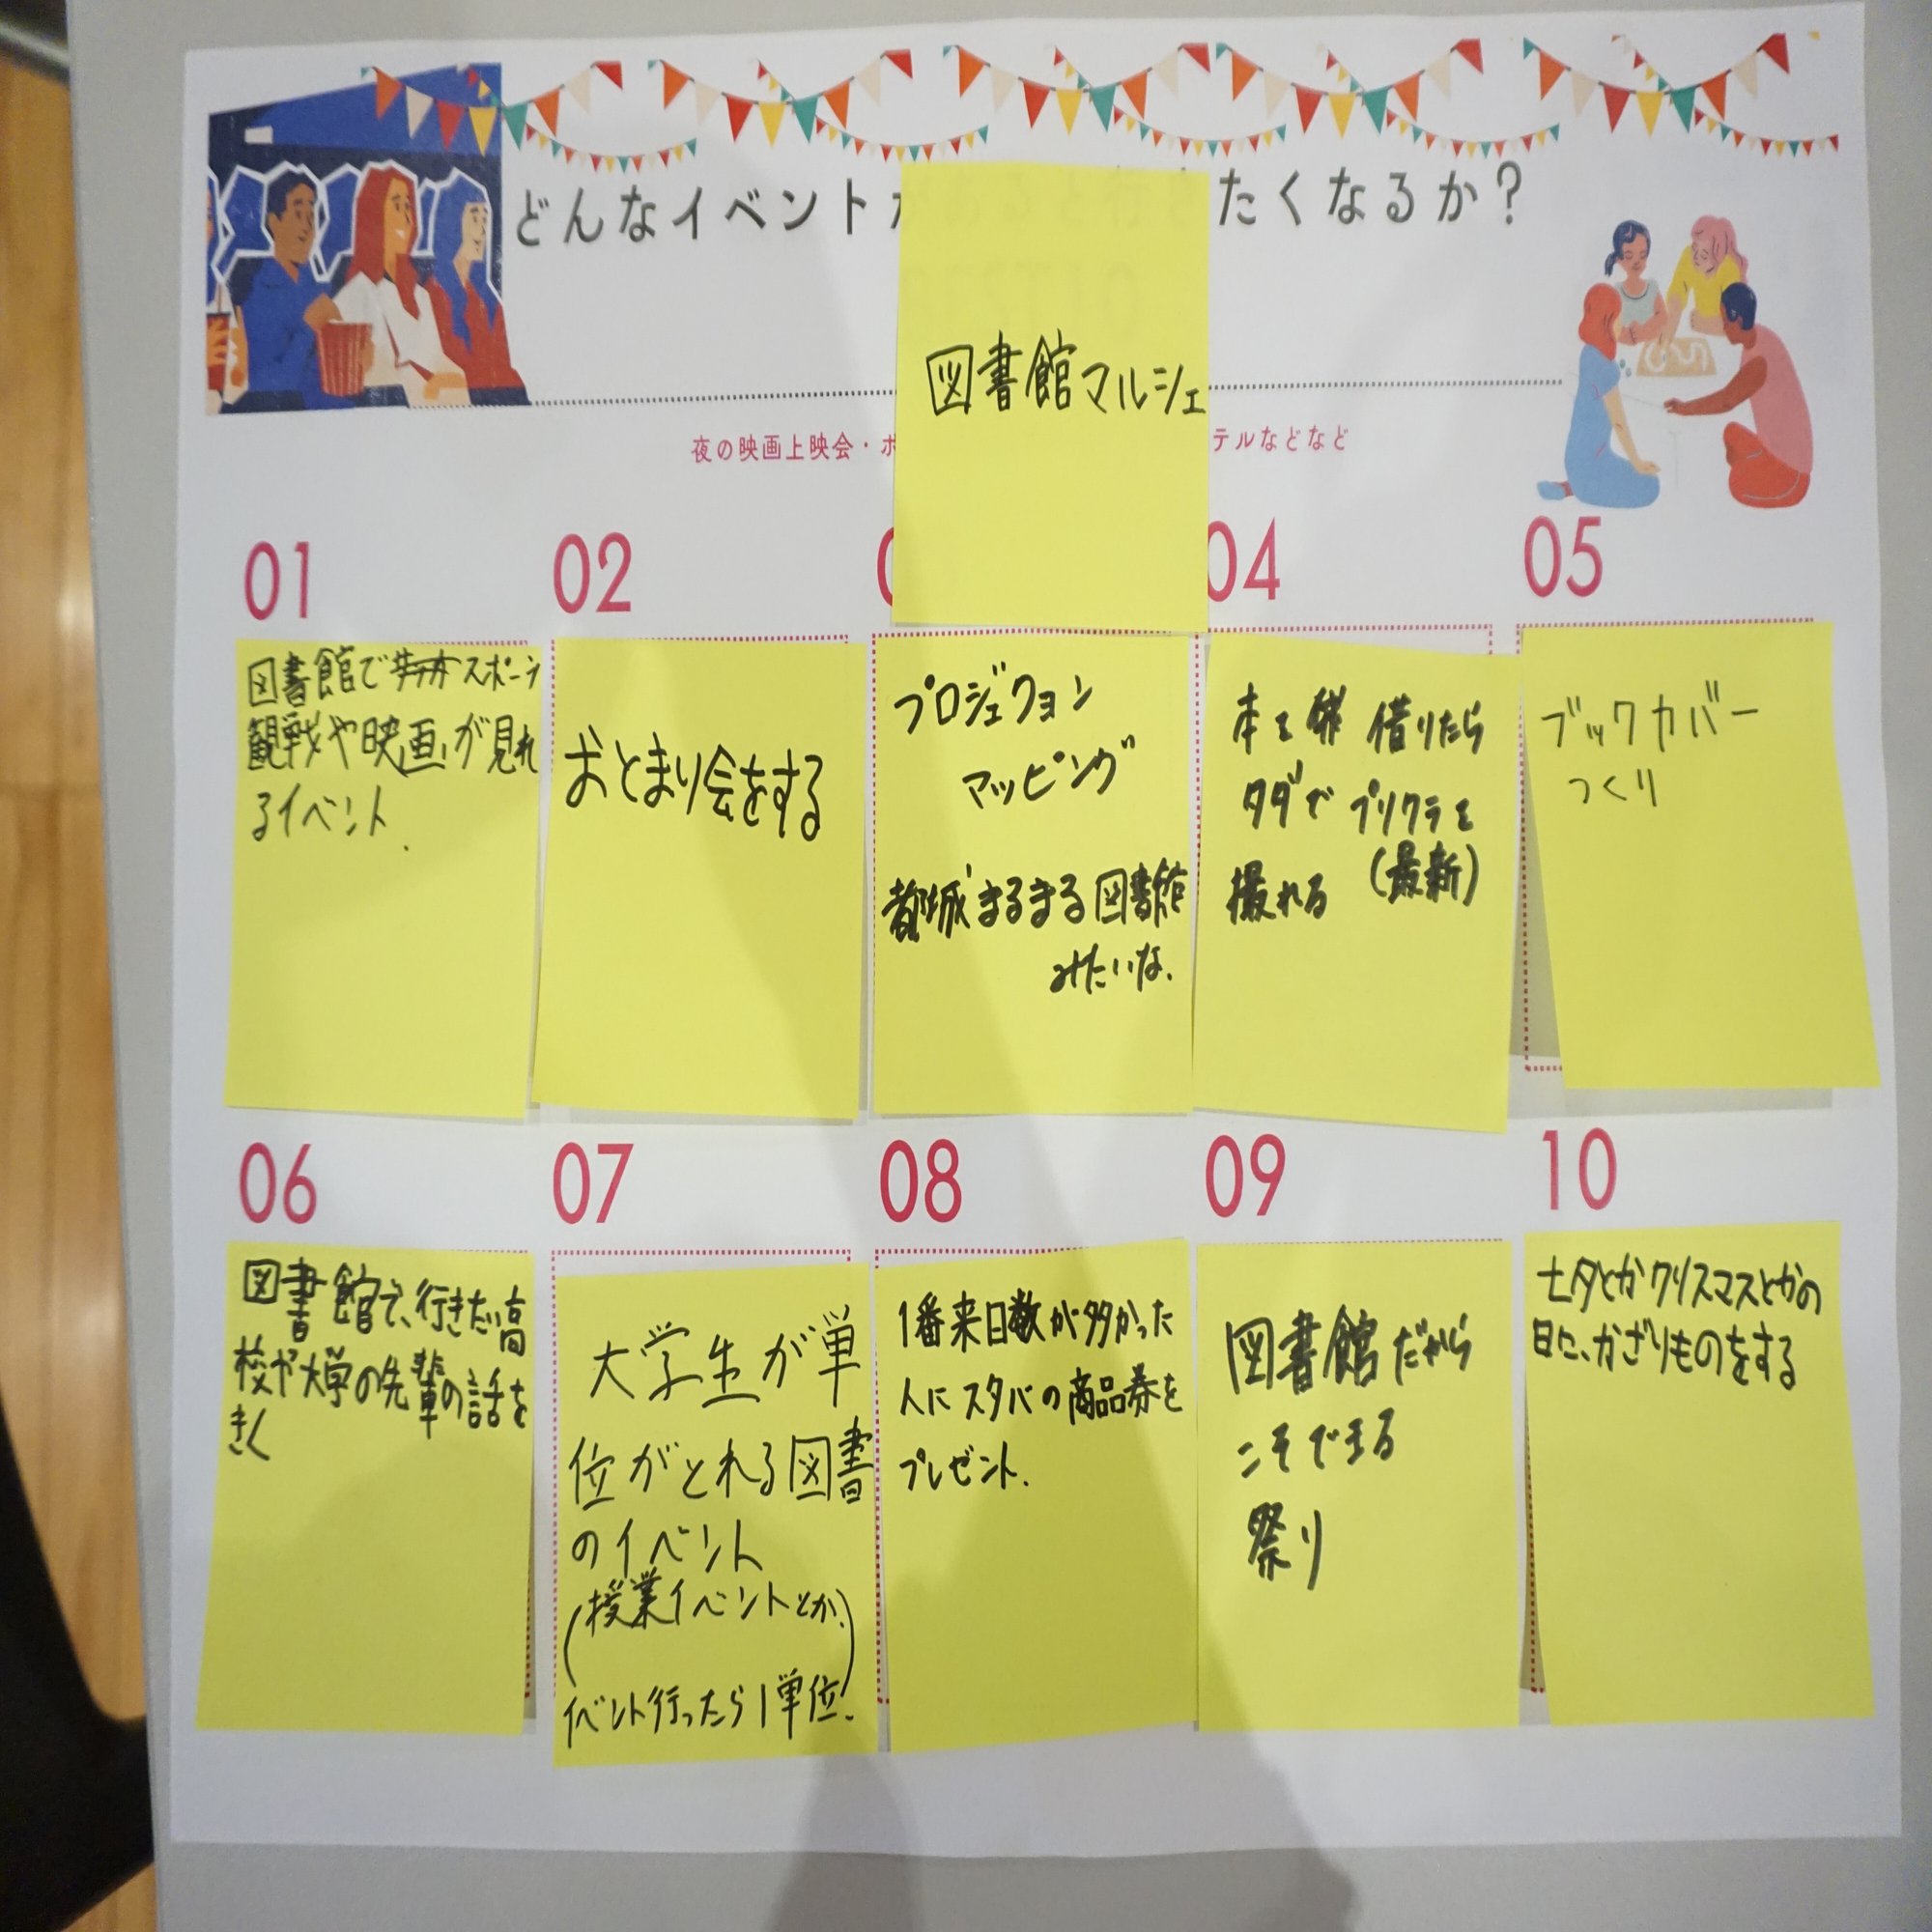 どんなイベント
たくなるか？
図書館マルシェ
夜の映画上映会・ボ
テルなどなど
01
02
04
05
図書館でスポーツ
観戦や映画が見れ
るイベント.
おとまり会をする
プロジェクション
マッピング
都城まるまる図書館
みたいな.
本を 借りたら
タダで プリクラを
撮れる (最新)
ブックカバー
つくり
06
07
08
09
10
図書館で、行きたい高
校や大学の先輩の話を
きく
大学生が単
位がとれる図書
のイベント
(授業イベントとか.)
イベント行ったら1単位!
1番来日数が多かった
人にスタバの商品券を
プレゼント.
図書館だから
こそできる
祭り
七夕とかクリスマスとかの
日に、かざりものをする